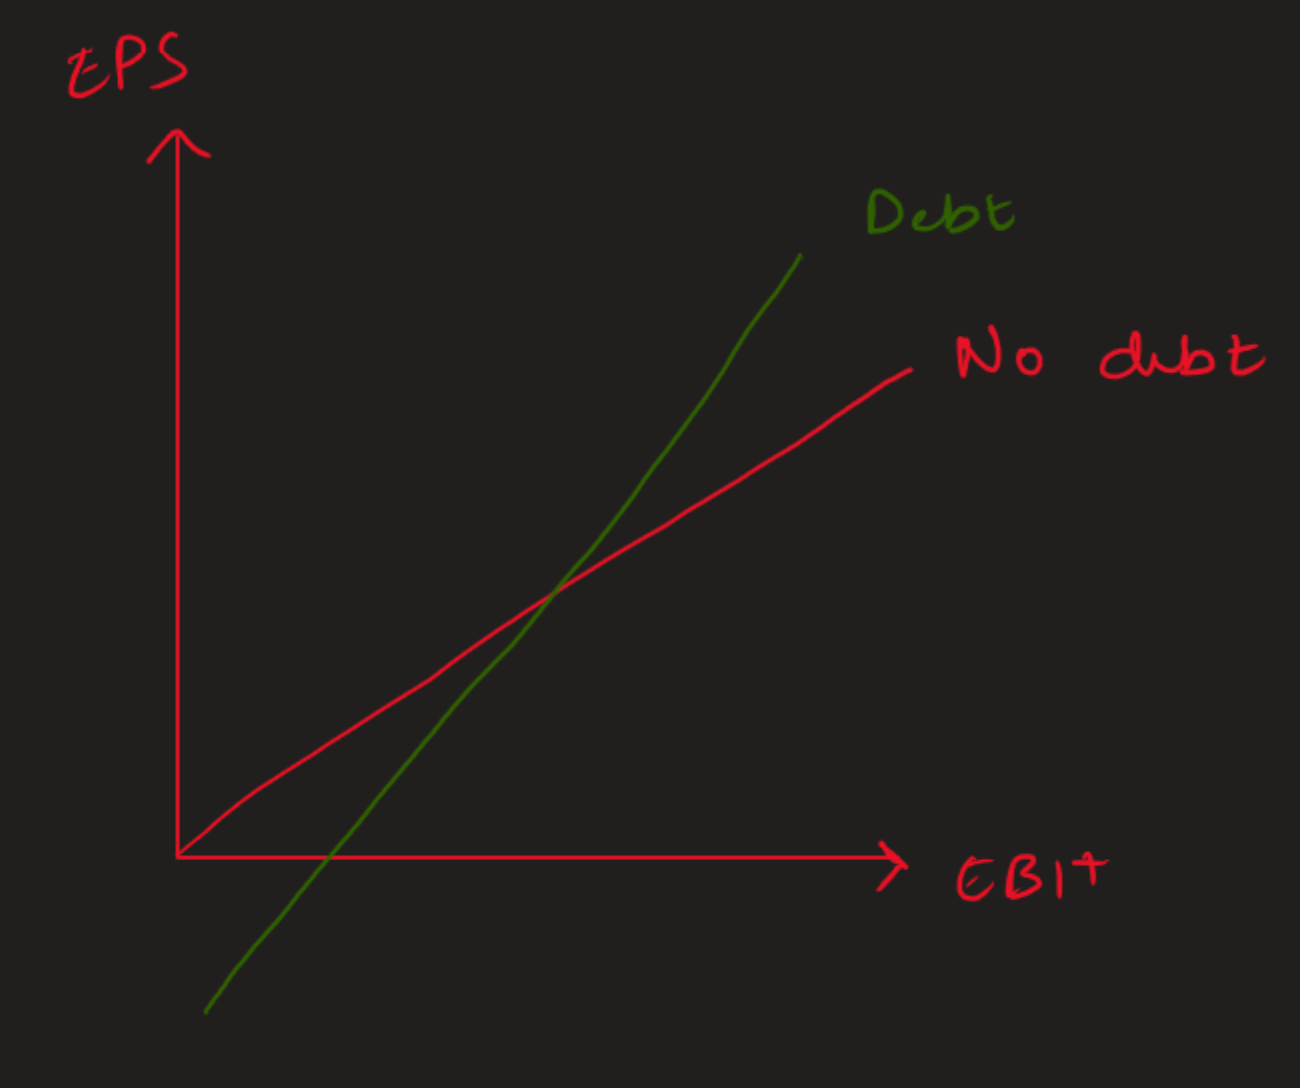 EPS
Debt
No debt
EBIT